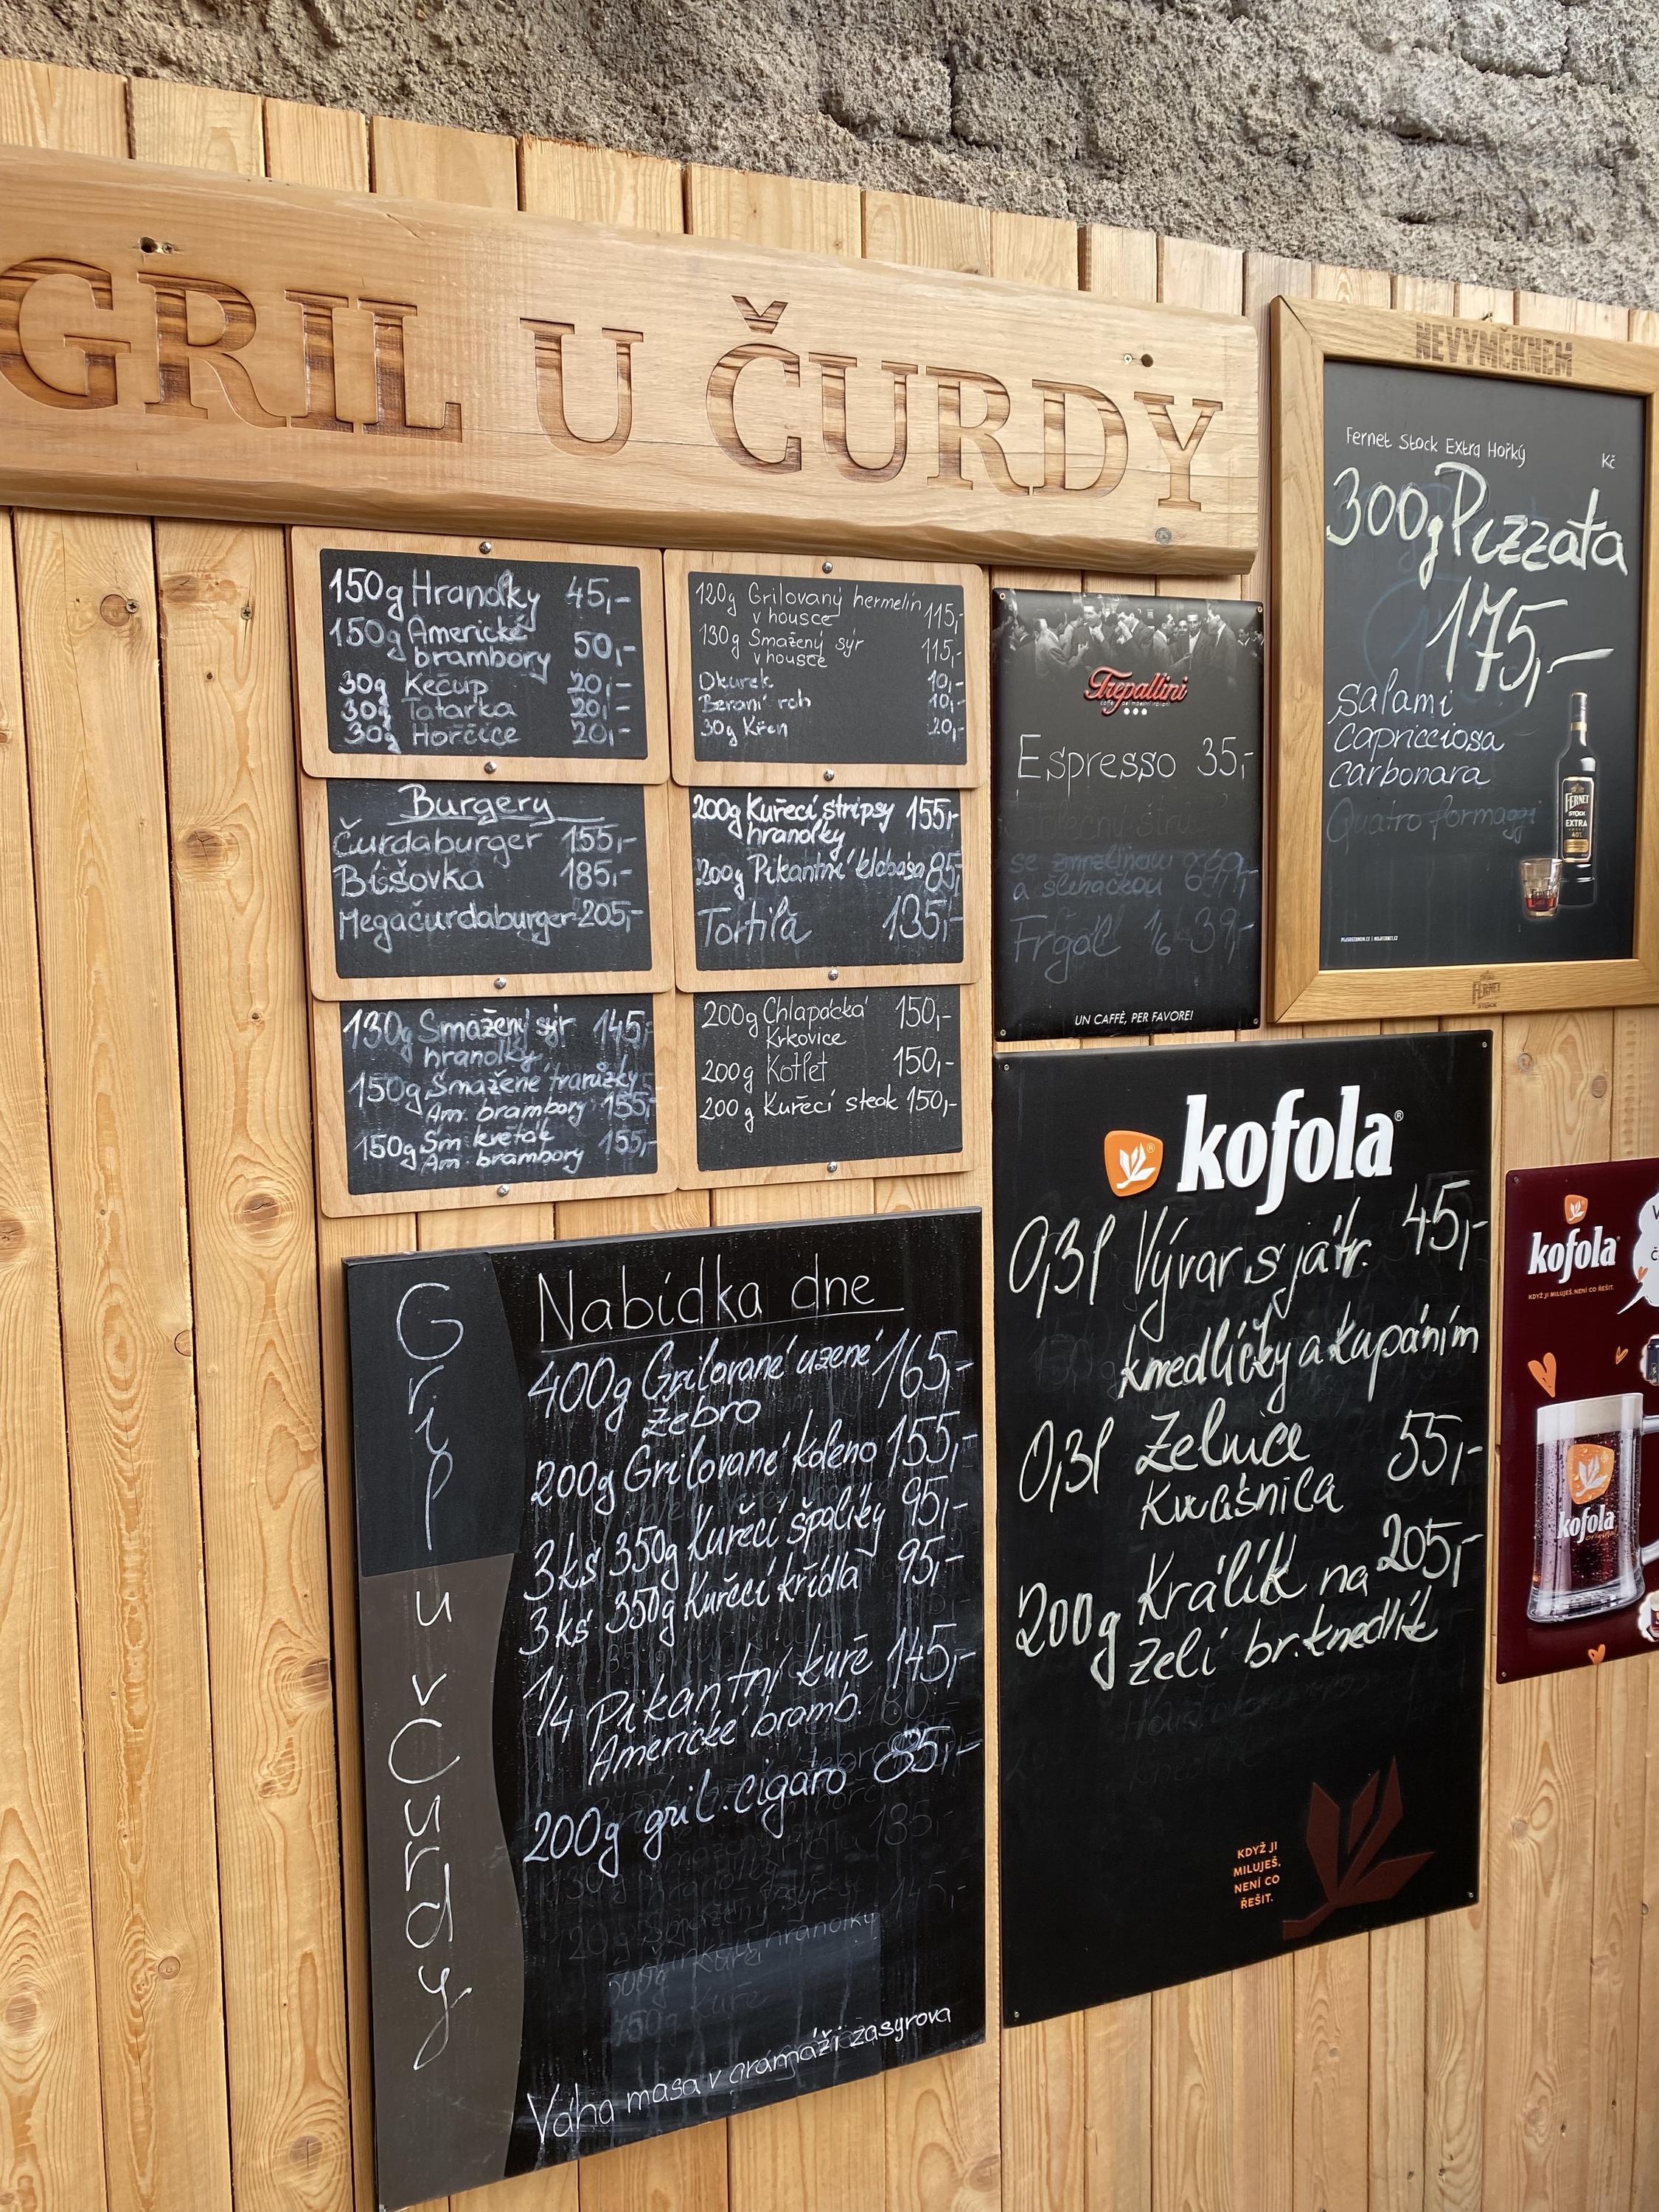 GRIL U ČURDY
150g Hranolky 45,-
150g Americké
brambory 50,-
30g Kečup 20,-
30g Tatarka 20,-
30g Hořčice 20,-
120g Grilovaný hermelín
v housce 115,-
130g Smažený sýr
v housce 115,-
Okurek 10,-
Beraní roh 10,-
30g Křen 20,-
Burgery
Čurdaburger 155,-
Bíšovka 185,-
Megačurdaburger 205,-
200g Kuřecí stripsy 155,-
hranolky
200g Pikantní klobása 85,-
Tortila 135,-
130g Smažený sýr 145,-
hranolky
150g Smažené
Am. brambory 155,-
150g Sm. květák 155,-
Am. brambory
200g Chlapácká 150,-
Krkovice
200g Kotlet 150,-
200g Kuřecí steak 150,-
Trepallini
Espresso 35,-
se zmrzlinou
a šlehačkou
Frgál 1/6 39,-
UN CAFFÈ, PER FAVORE!
NEVYMĚKNEM
Fernet Stock Extra Hořký Kč
300g Pizzata
175,-
Salami
Capricciosa
Carbonara
Quatro formaggi
FERNET
STOCK
EXTRA
FERNET
STOCK
Gril u Čurdy
Nabídka dne
400g Grilované uzené 165,-
žebro
200g Grilované koleno 155,-
3ks 350g Kuřecí špalíky 95,-
3ks 350g Kuřecí křídla 95,-
1/4 Pikantní kuře 145,-
Americké bramb.
200g gril. cigáro 85,-
Váha masa v gramáži zasyrova
kofola
0,3l Vývar s játr. 45,-
knedlíčky a kapáním
0,3l Zelnice 55,-
Kwašnica
200g Králík na 205,-
zelí br. knedlík
KDYŽ JI
MILUJEŠ,
NENÍ CO
ŘEŠIT.
kofola
KDYŽ JI MILUJEŠ, NENÍ CO ŘEŠIT.
kofola
original